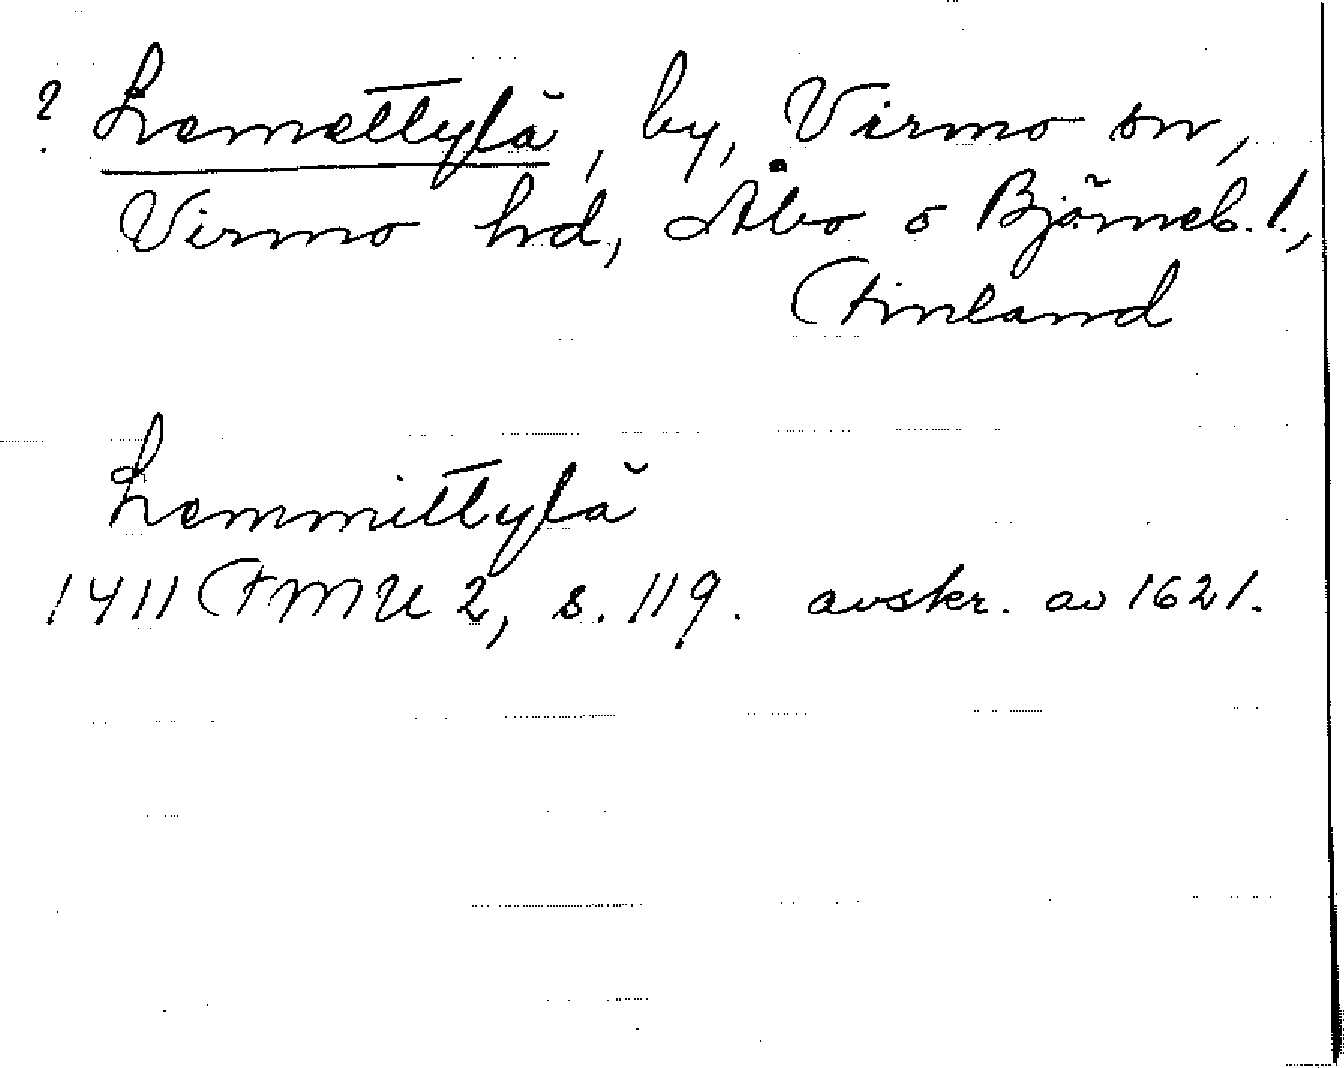 ? Lemettylä, by, Virmo sn,
Virmo hd, Åbo o Björneb. l.,
Finland
Lemmittylä
1411 FMU 2, s. 119. avskr. av 1621.